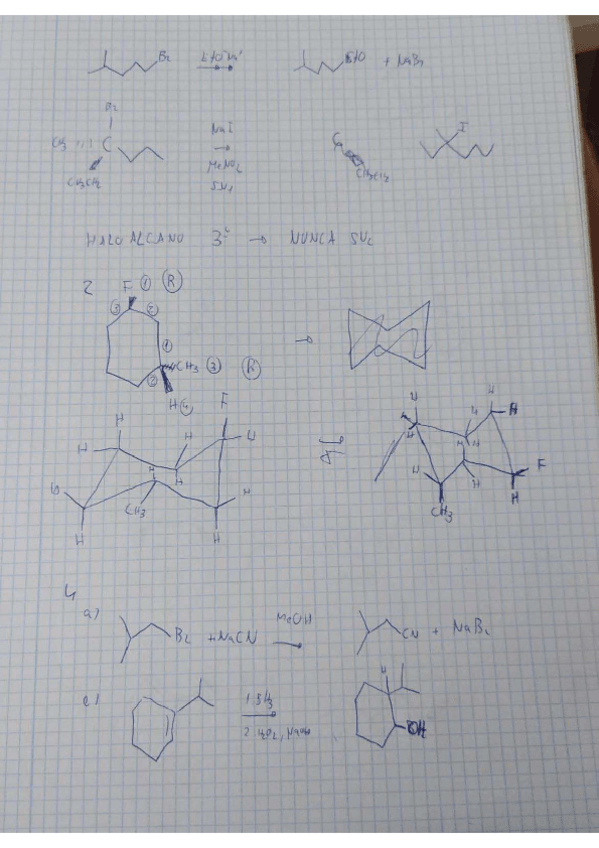 Br EtO⁻Na⁺ EtO + NaBr
Br
CH3 C NaI I
CH3CH2 MeNO2 CH2CH3
SN1
HALOALCANO 3º → NUNCA SN2
2 F ① Ⓡ
③ ②
①
CH3 ③ Ⓡ
② H④
H H F
H H H
H
H
CH3 H
H H
H H
H H H
H H F
H H
CH3
4
a) Br + NaCN MeOH CN + NaBr
e) 1. BH3 H
2. H2O2, NaOH OH